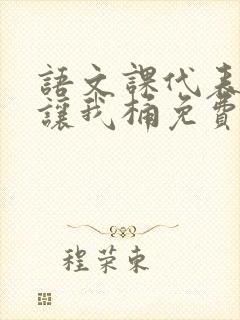 語文課代表
讓我桶免費
程荣東